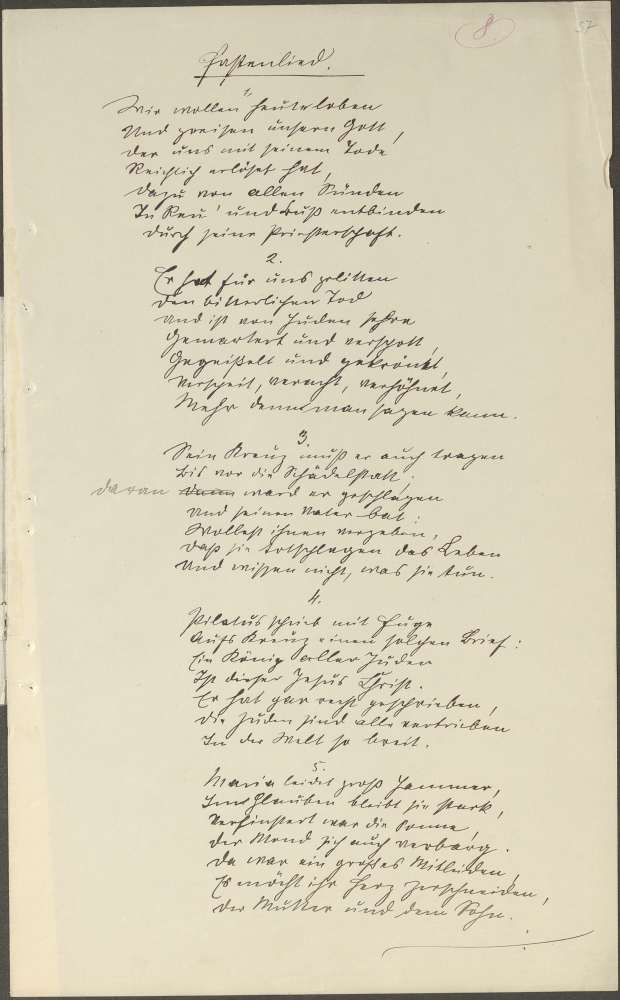 8.
57
Fastenlied.
1.
Wir wollen heute loben
Und preisen unsern Gott,
Der uns mit seinem Tode
Reichlich erlöset hat,
Dazu von allen Sünden
In Reu' und Buß entbinden
Durch seine Priesterschaft.
2.
Er hat für uns gelitten
Den bitterlichen Tod
Und ist von Juden sehre
Gemartert und verspott,
Gegeißelt und gekrönet,
Verspeit, veracht, verhöhnet,
Mehr denn man sagen kann.
3.
Sein Kreuz muß er auch tragen
Bis vor die Schädelstatt;
daran ward er geschlagen
Und seinen Vater bat:
Wollest ihnen vergeben,
Daß sie totschlagen das Leben
Und wissen nicht, was sie tun.
4.
Pilatus schrieb mit Fuge
Aufs Kreuz einen solchen Brief:
Ein König aller Juden
Ist dieser Jesus Christ.
Er hat gar recht geschrieben,
Die Juden sind alle vertrieben
In der Welt so breit.
5.
Maria leidet groß Jammer,
Im Glauben bleibt sie stark,
Verfinstert war die Sonne,
Der Mond sich auch verbarg.
Da war ein großes Mitleiden,
Es möcht ihr Herz zerschneiden,
Der Mutter und dem Sohn.